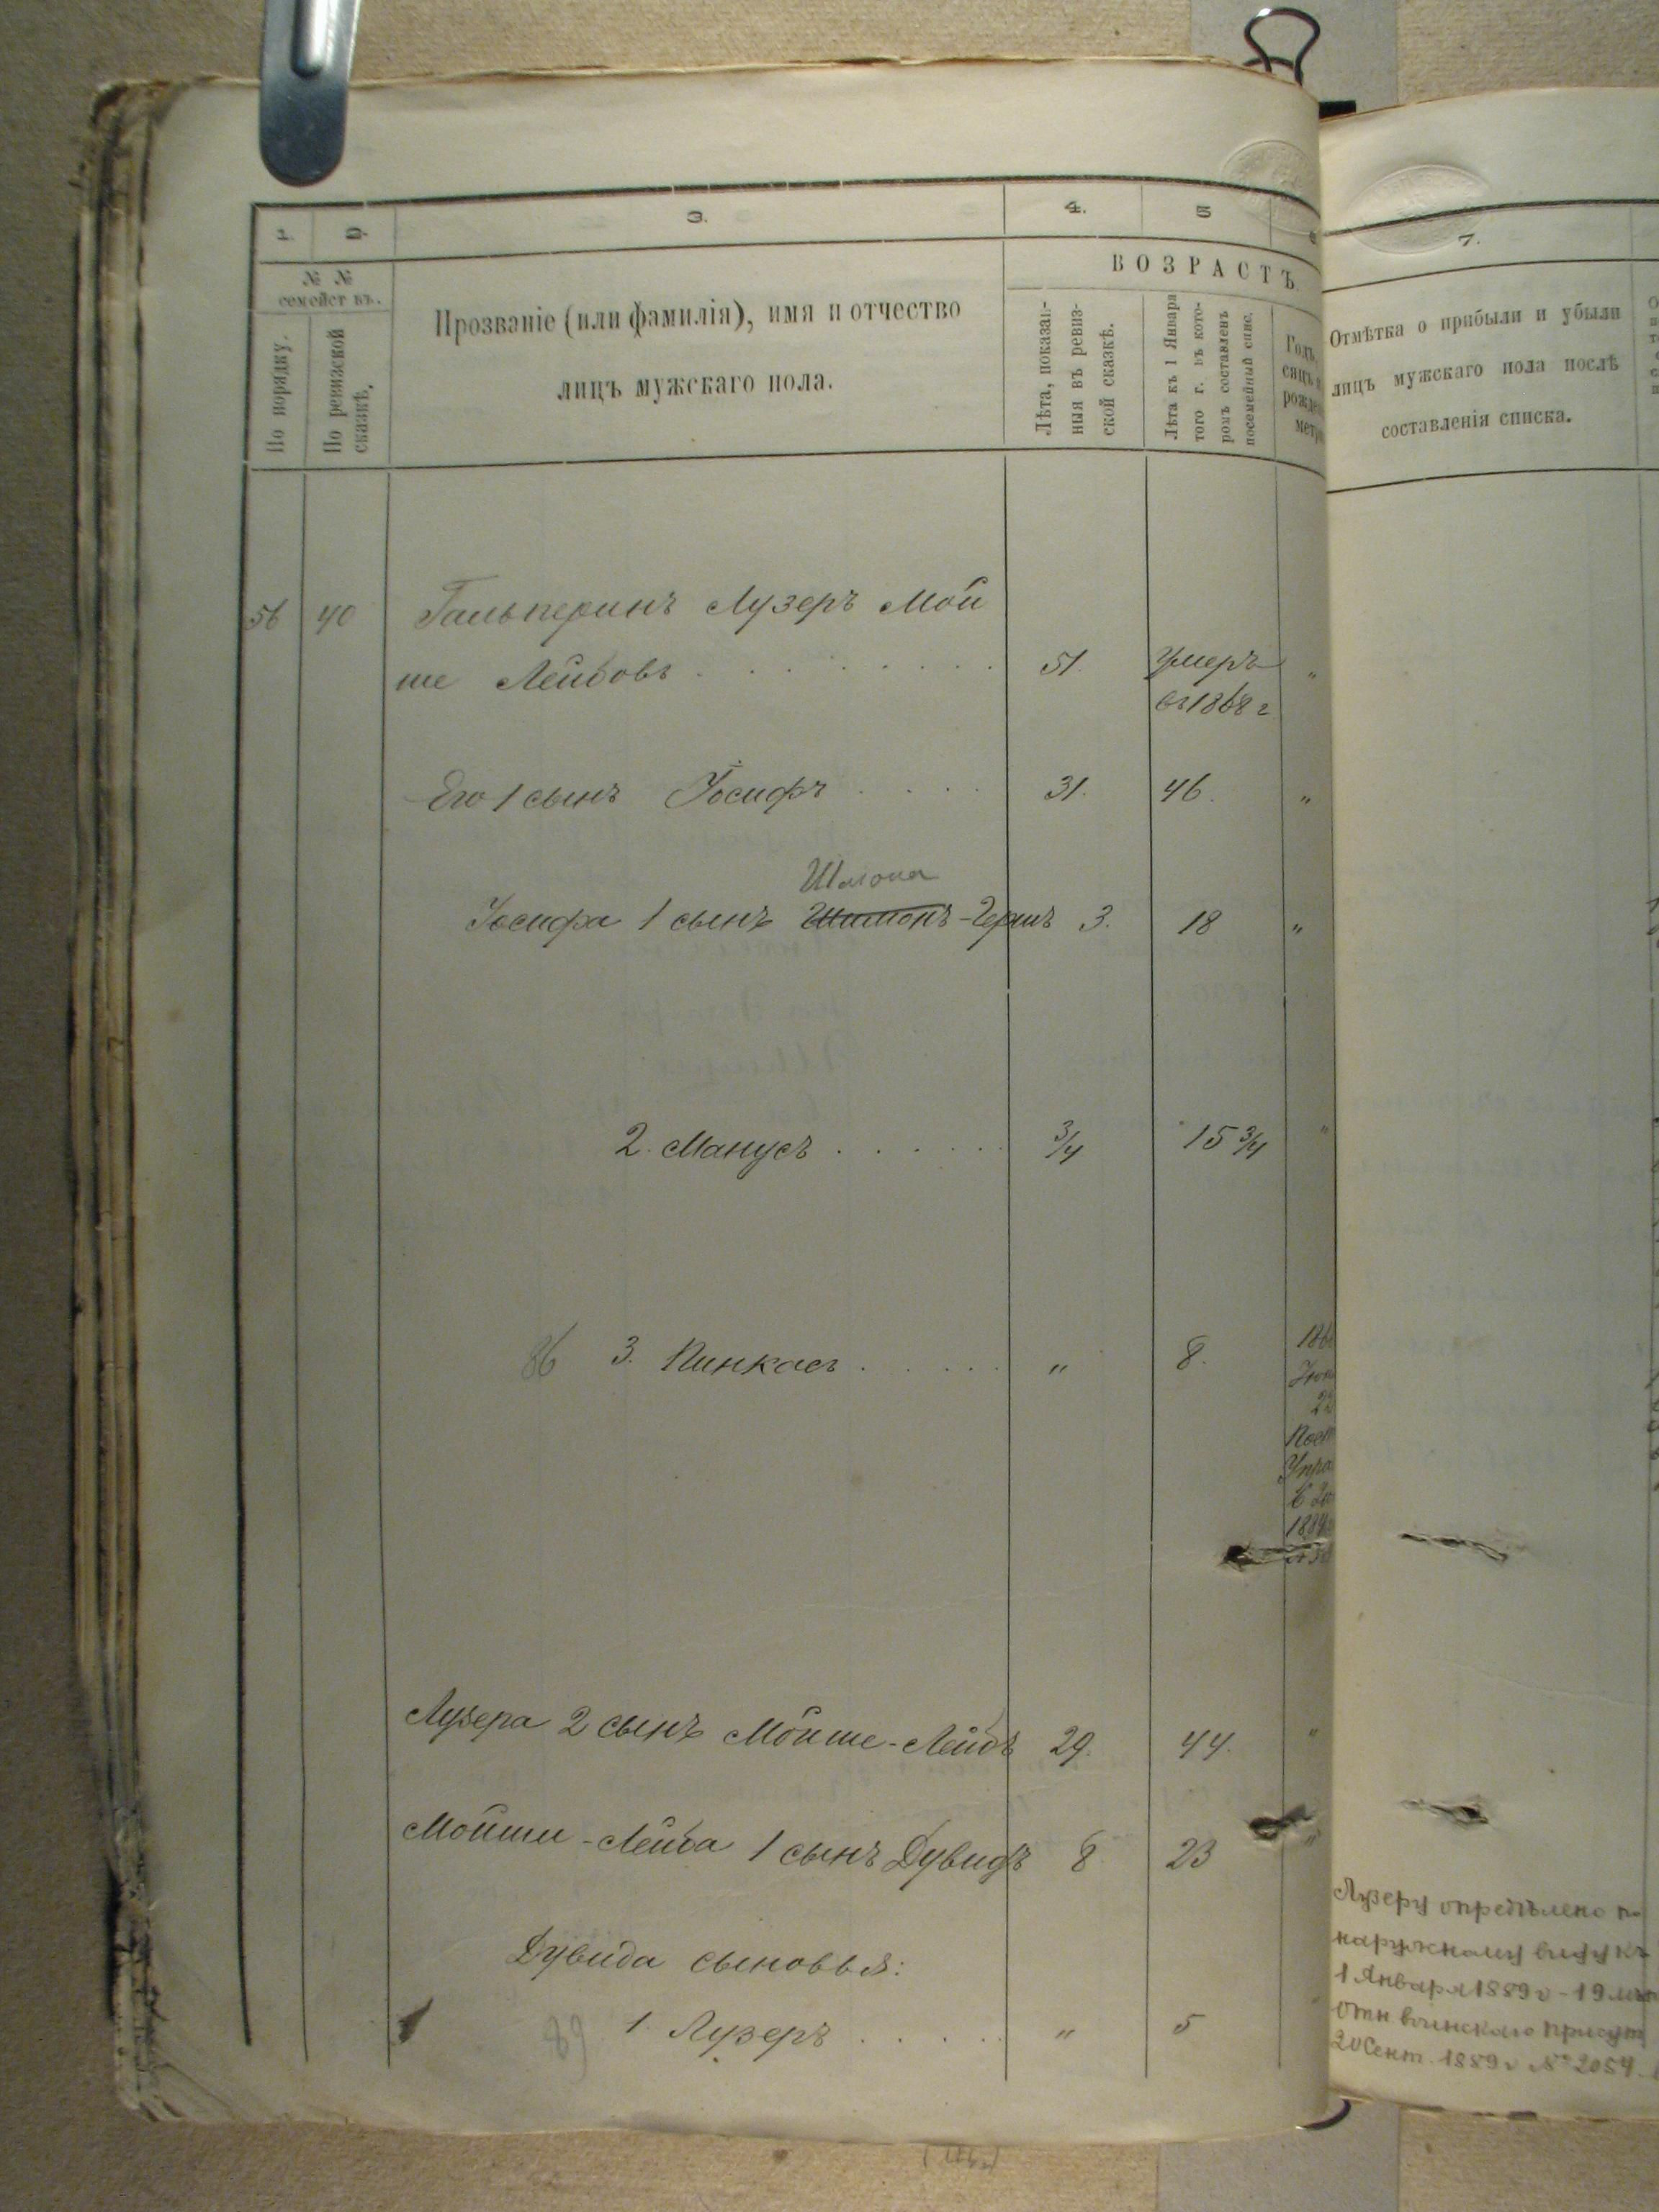 1. 2. 3. 4. 5 7.
№ №
семейст въ.
По порядку.
По ревизской
сказкѣ.
Прозваніе (или фамилія), имя и отчество
лицъ мужскаго пола.
ВОЗРАСТЪ.
Лѣта, показан-
ныя въ ревиз-
ской сказкѣ.
Лѣта къ 1 Января
того г. въ кото-
ромъ составленъ
посемейный спис.
Годъ,
сяцъ и
рожде
метр
Отмѣтка о прибыли и убыли
лицъ мужскаго пола послѣ
составленія списка.
56 40 Гальперинъ Лузеръ Мой
ше Лейбовъ . . . . . . . . 51. Умеръ "
въ 1868 г
Его 1 сынъ Іосифъ . . . . 31. 46. "
Шлома
Іосифа 1 сынъ Шимонъ-Гершъ 3. 18 "
2. Манусъ . . . . . . 3/4 15 3/4 "
86 3. Пинкасъ . . . . . " 8. 186
22
Пост
Упра
1884
Лузера 2 сынъ Мойше-Лейбъ 29. 44. "
Мойши-Лейба 1 сынъ Дувидъ 8 23 "
Дувида сыновья:
89 1. Лузеръ . . . . . " 5
Лузеру опредѣлено по
наружному виду къ
1 Января 1889 г - 19 лѣт
Отн воинскаго присут
20 Сент. 1889 г № 2054.